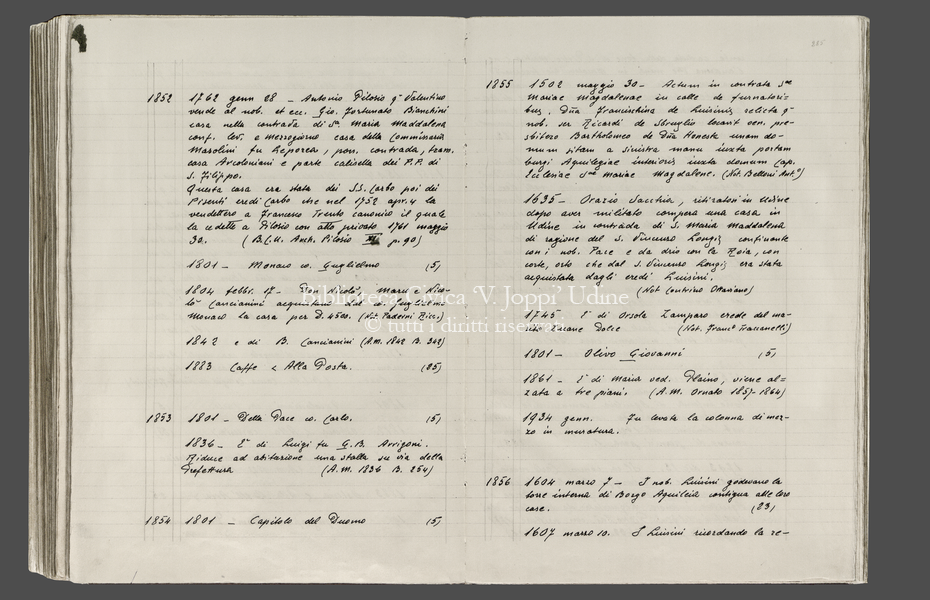 1852 1762 genn 28 – Antonio Pilosio q.m Valentino
vende al nob. et ecc. Gio. Fortunato Bianchini
casa nella contrada di S.a Maria Maddalena
conf. lev. e mezzogiorno casa della Commissaria
Masolini fu Leporea, pon. contrada, tram.
casa Arcoloniani e parte calisella dei P.P. di
S. Filippo.
Questa casa era stata dei SS. Carbo poi dei
Pisenti eredi Carbo che nel 1752 apr. 4 la
vendettero a Francesco Trento canonico il quale
la cedette a Pilosio con atto privato 1761 maggio
30. (B.C.U. Arch. Pilosio XI p. 90)
1801 – Monaco co. Guglielmo (5)
1804 febbr. 17 – Nicolò, Marco e Nico-
lò Cancianini acquistano dal co. Guglielmo
Monaco la casa per D. 4500. (Not. Paderni Ricc.)
1842 e di B. Cancianini (A.M. 1842 B. 342)
1883 Caffè "Alla Posta. (25)
1853 1801 – Della Pace co. Carlo. (5)
1836 – E' di Luigi fu G.B. Arrigoni.
Riduce ad abitazione una stalla su via della
Prefettura (A.M. 1836 B. 254)
1854 1801 – Capitolo del Duomo (5)
1855 1502 maggio 30 – Actum in contrata S.ae
Mariae Magdalenae in calle de furnatorie
bus. Dña Franceschina de Luisinis relicta q.
nob. ser Ricardi de Sbruglio locavit ven. pre-
sbitero Bartholomeo de Dña Honesta unam do-
mum sitam a sinistra manu iuxta portam
burgi Aquilegiae interioris iuxta domum Cap.
Ecclesiae S.ae Mariae Magdalene. (Not. Belloni Ant.o)
1635 – Orazio Sacchia, ritiratosi in Udine
dopo aver militato compera una casa in
Udine in contrada di S. Maria Maddalena
di ragione del S. Vincenzo Longis confinante
con i nob. Pace e da drio con la Roia, con
corte, orto che dal S. Vincenzo Longis era stata
acquistata dagli eredi Luisini.
(Not Contrino Ottaviano)
1745 – E' di Orsola Zamparo erede del ma-
rito Dolce (Not. Franc.o Traccanelli)
1801 – Olivo Giovanni (5)
1861 – E' di Maria ved. Plaino, viene al=
zata a tre piani. (A.M. Ornato 1857-1864)
1934 genn. Fu levata la colonna di mez-
zo in muratura.
1856 1604 marzo 7 – I nob. Luisini godevano la
torre interna di Borgo Aquileia contigua alle loro
case. (23)
1607 marzo 10. I Luisini ricordando la re-
Biblioteca Civica 'V. Joppi' Udine
© tutti i diritti riservati